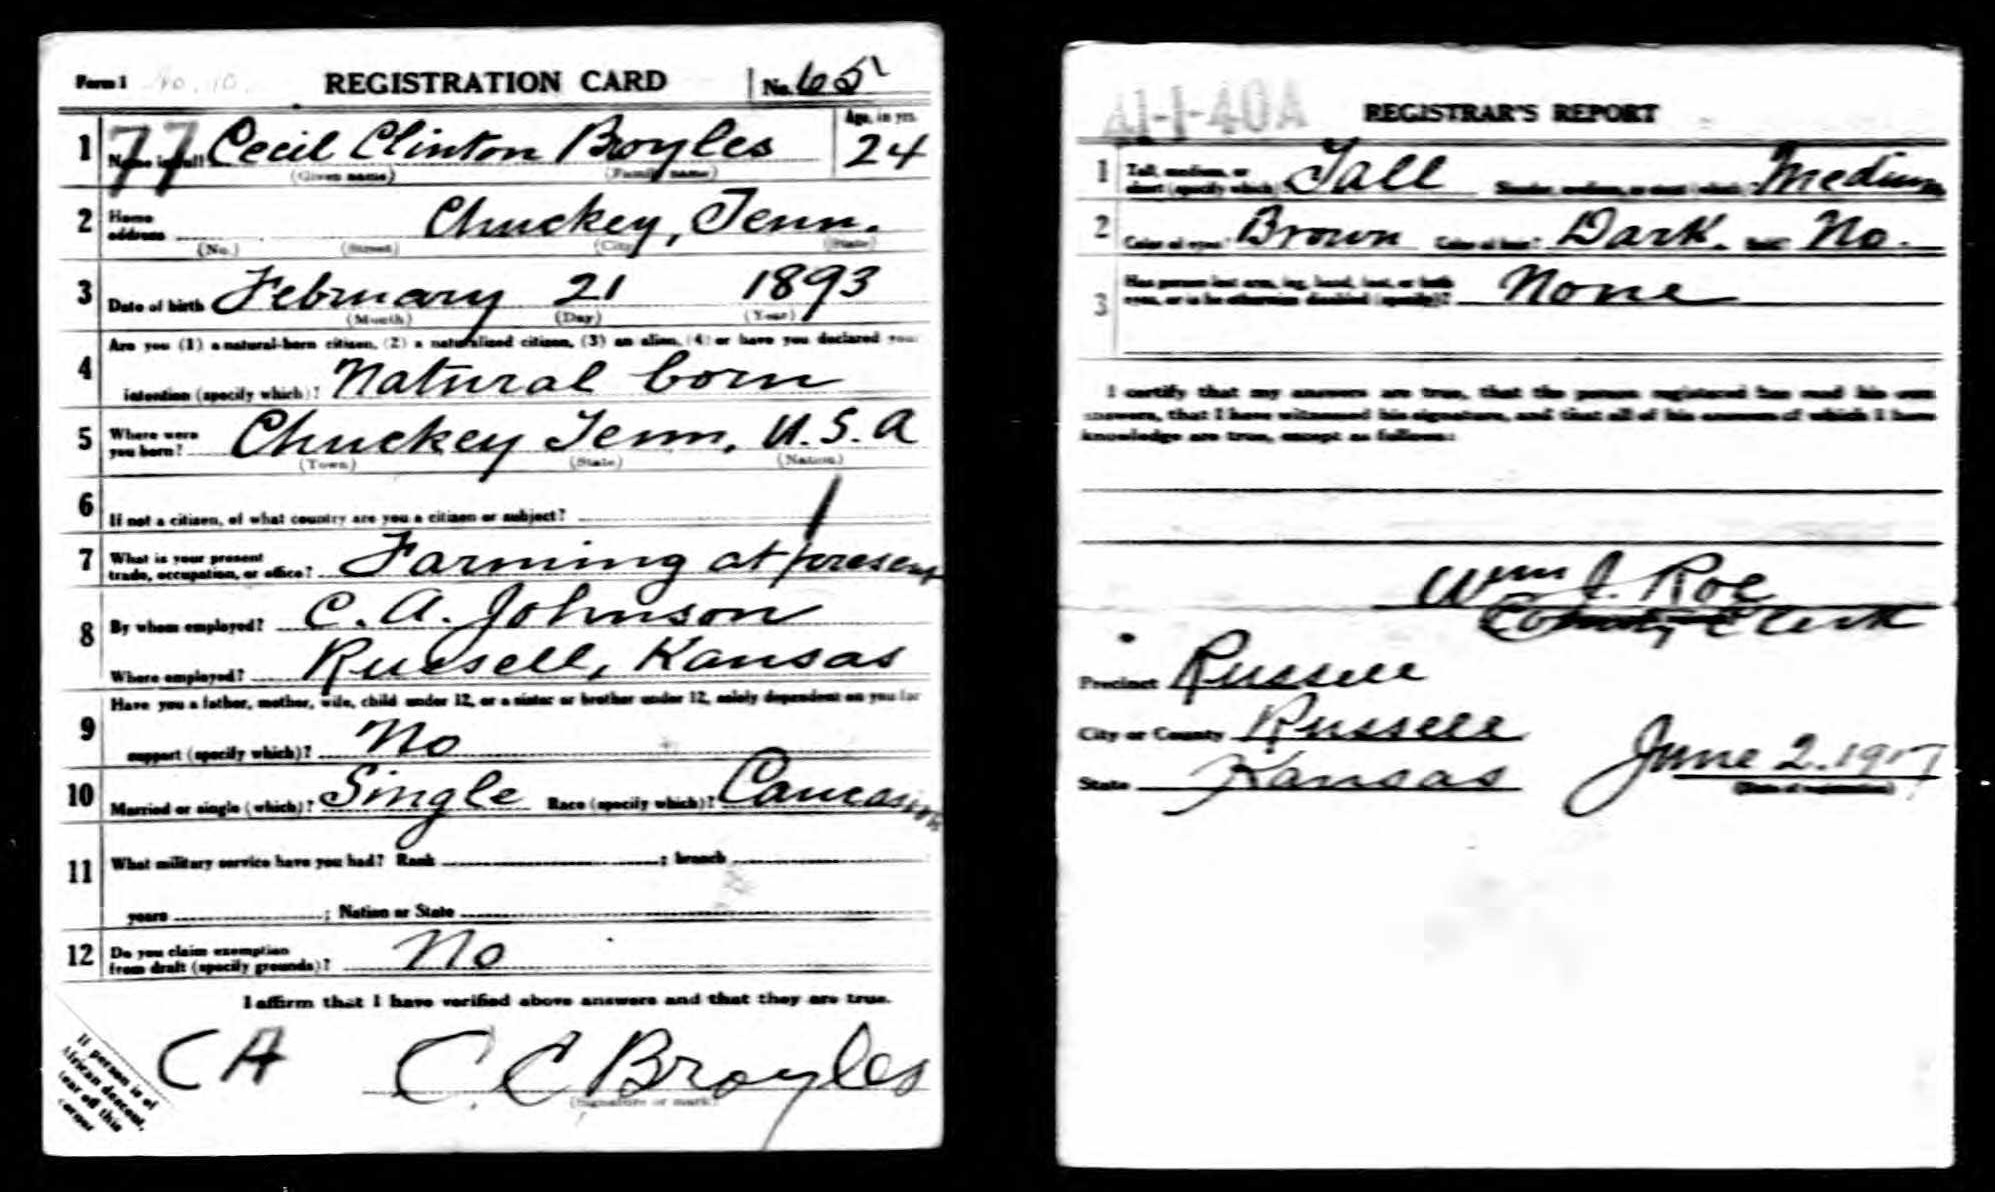 Form 1 REGISTRATION CARD No. 65
1 77 Name in full Cecil Clinton Broyles Age, in yrs. 24
(Given name) (Family name)
2 Home address Chuckey, Tenn.
(No.) (Street) (City) (State)
3 Date of birth February 21 1893
(Month) (Day) (Year)
4 Are you (1) a natural-born citizen, (2) a naturalized citizen, (3) an alien, (4) or have you declared your
intention (specify which)? Natural born
5 Where were you born? Chuckey Tenn, U.S.A
(Town) (State) (Nation)
6 If not a citizen, of what country are you a citizen or subject?
7 What is your present trade, occupation, or office? Farming at present
8 By whom employed? C. A. Johnson
Where employed? Russell, Kansas
9 Have you a father, mother, wife, child under 12, or a sister or brother under 12, solely dependent on you for
support (specify which)? No
10 Married or single (which)? Single Race (specify which)? Caucasian
11 What military service have you had? Rank ; branch
years ; Nation or State
12 Do you claim exemption from draft (specify grounds)? No
I affirm that I have verified above answers and that they are true.
CA C. C Broyles
(Signature or mark)
If person is of
African descent,
tear off this
corner
41-1-40A REGISTRAR'S REPORT
1 Tall, medium, or short (specify which)? Tall Slender, medium, or stout (which)? Medium
2 Color of eyes? Brown Color of hair? Dark. Bald? No.
3 Has person lost arm, leg, hand, foot, or both
eyes, or is he otherwise disabled (specify)? None
I certify that my answers are true, that the person registered has read his own
answers, that I have witnessed his signature, and that all of his answers of which I have
knowledge are true, except as follows:
Wm J. Roe
County Clerk
Precinct Russell
City or County Russell
State Kansas June 2. 1917
(Date of registration)